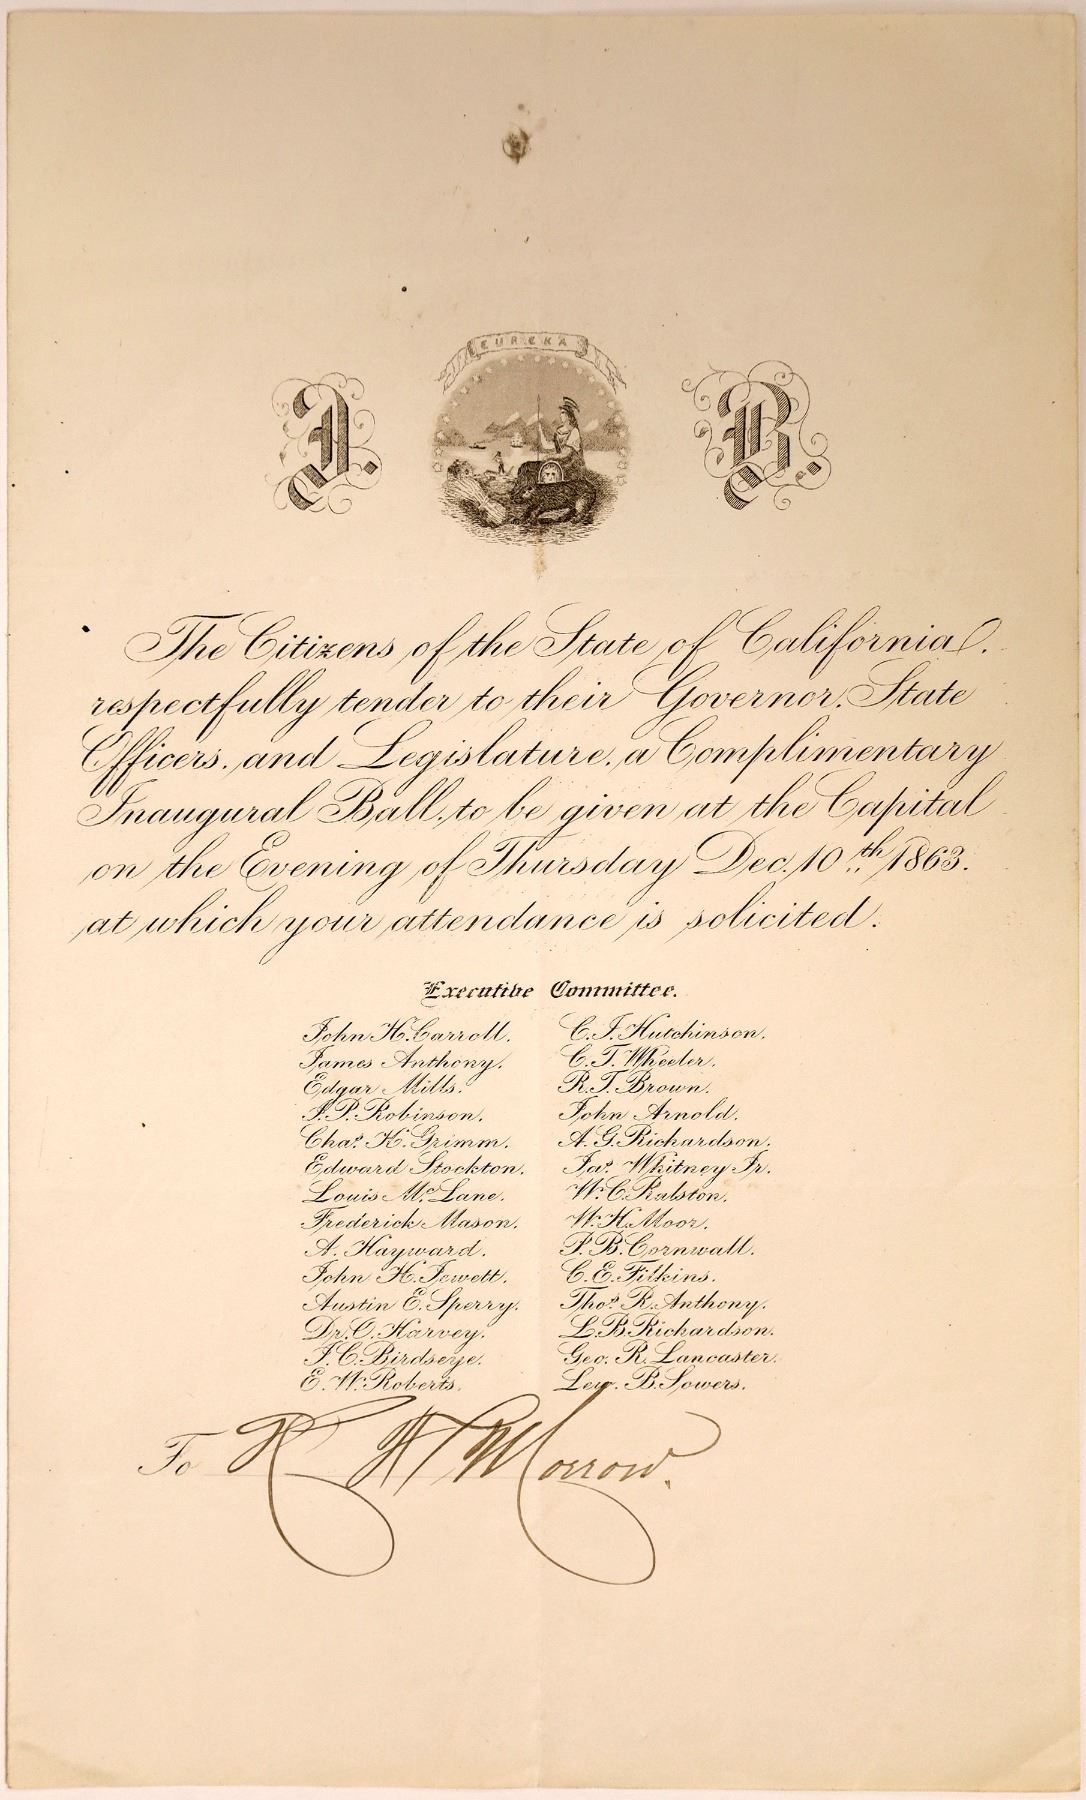 EUREKA
I. B.
The Citizens of the State of California.
respectfully tender to their Governor, State
Officers, and Legislature, a Complimentary
Inaugural Ball, to be given at the Capital
on the Evening of Thursday Dec. 10th 1863.
at which your attendance is solicited.
Executive Committee.
John H. Carroll.
James Anthony.
Edgar Mills.
J. P. Robinson.
Chas. K. Grimm.
Edward Stockton.
Louis McLane.
Frederick Mason.
A. Hayward.
John H. Jewett.
Austin E. Sperry.
Dr. O. Harvey.
J. C. Birdseye.
E. W. Roberts.
C. J. Hutchinson.
C. T. Wheeler.
R. T. Brown.
John Arnold.
A. G. Richardson.
Jas. Whitney Jr.
W. C. Ralston.
W. H. Moor.
P. B. Cornwall.
C. E. Filkins.
Thos. R. Anthony.
L. B. Richardson.
Geo. R. Lancaster.
Lew. B. Sowers.
To R H Morrow.